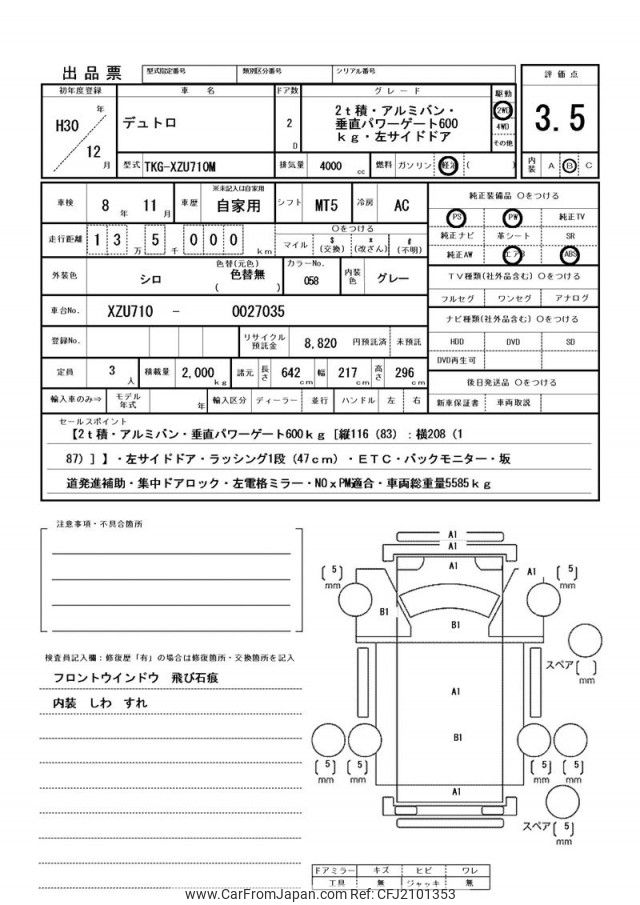 出品票
型式指定番号
類別区分番号
シリアル番号
初年度登録
車 名
ドア数
グレード
駆動
評価点
H30 年
12 月
デュトロ
2 D
2t積・アルミバン・
垂直パワーゲート600
kg・左サイドドア
2WD
4WD
その他
3.5
型式
TKG-XZU710M
排気量
4000 cc
燃料
ガソリン
軽油
( )
内装
A
B
C
車検
8 年 11 月
車歴
※未記入は自家用
自家用
シフト
MT5
冷房
AC
純正装備品 〇をつける
PS
PW
純正TV
走行距離
1 3 万 5 千 0 0 0 km
〇をつける
マイル
$ (交換)
* (改ざん)
# (不明)
純正ナビ
革シート
SR
純正AW
エアB
ABS
外装色
シロ
色替(元色)
色替無
( )
カラーNo.
058
内装色
グレー
TV種類(社外品含む) 〇をつける
フルセグ
ワンセグ
アナログ
車台No.
XZU710 - 0027035
ナビ種類(社外品含む) 〇をつける
登録No.
リサイクル預託金
8,820 円預託済
未預託
HDD
DVD
SD
DVD再生可
定員
3 人
積載量
2,000 kg
諸元
長さ
642 cm
幅
217 cm
高さ
296 cm
後日発送品 〇をつける
輸入車のみ⇒
モデル年式
年
輸入区分
ディーラー
並行
ハンドル
左
右
新車保証書
車両取説
セールスポイント
【2t積・アルミバン・垂直パワーゲート600kg［縦116（83）：横208（1
87）］】・左サイドドア・ラッシング1段（47cm）・ETC・バックモニター・坂
道発進補助・集中ドアロック・左電格ミラー・NOxPM適合・車両総重量5585kg
注意事項・不具合箇所
検査員記入欄：修復歴「有」の場合は修復箇所・交換箇所を記入
フロントウインドウ 飛び石痕
内装 しわ すれ
A1
A1
A1
A1
[5] mm
[5] mm
B1
B1
スペア[ ] mm
A1
B1
[5] mm
[5] mm
[5] mm
[5] mm
A1
スペア[5] mm
ドアミラー
キズ
ヒビ
ワレ
工具
無
ジャッキ
無
www.CarFromJapan.com Ref: CFJ2101353